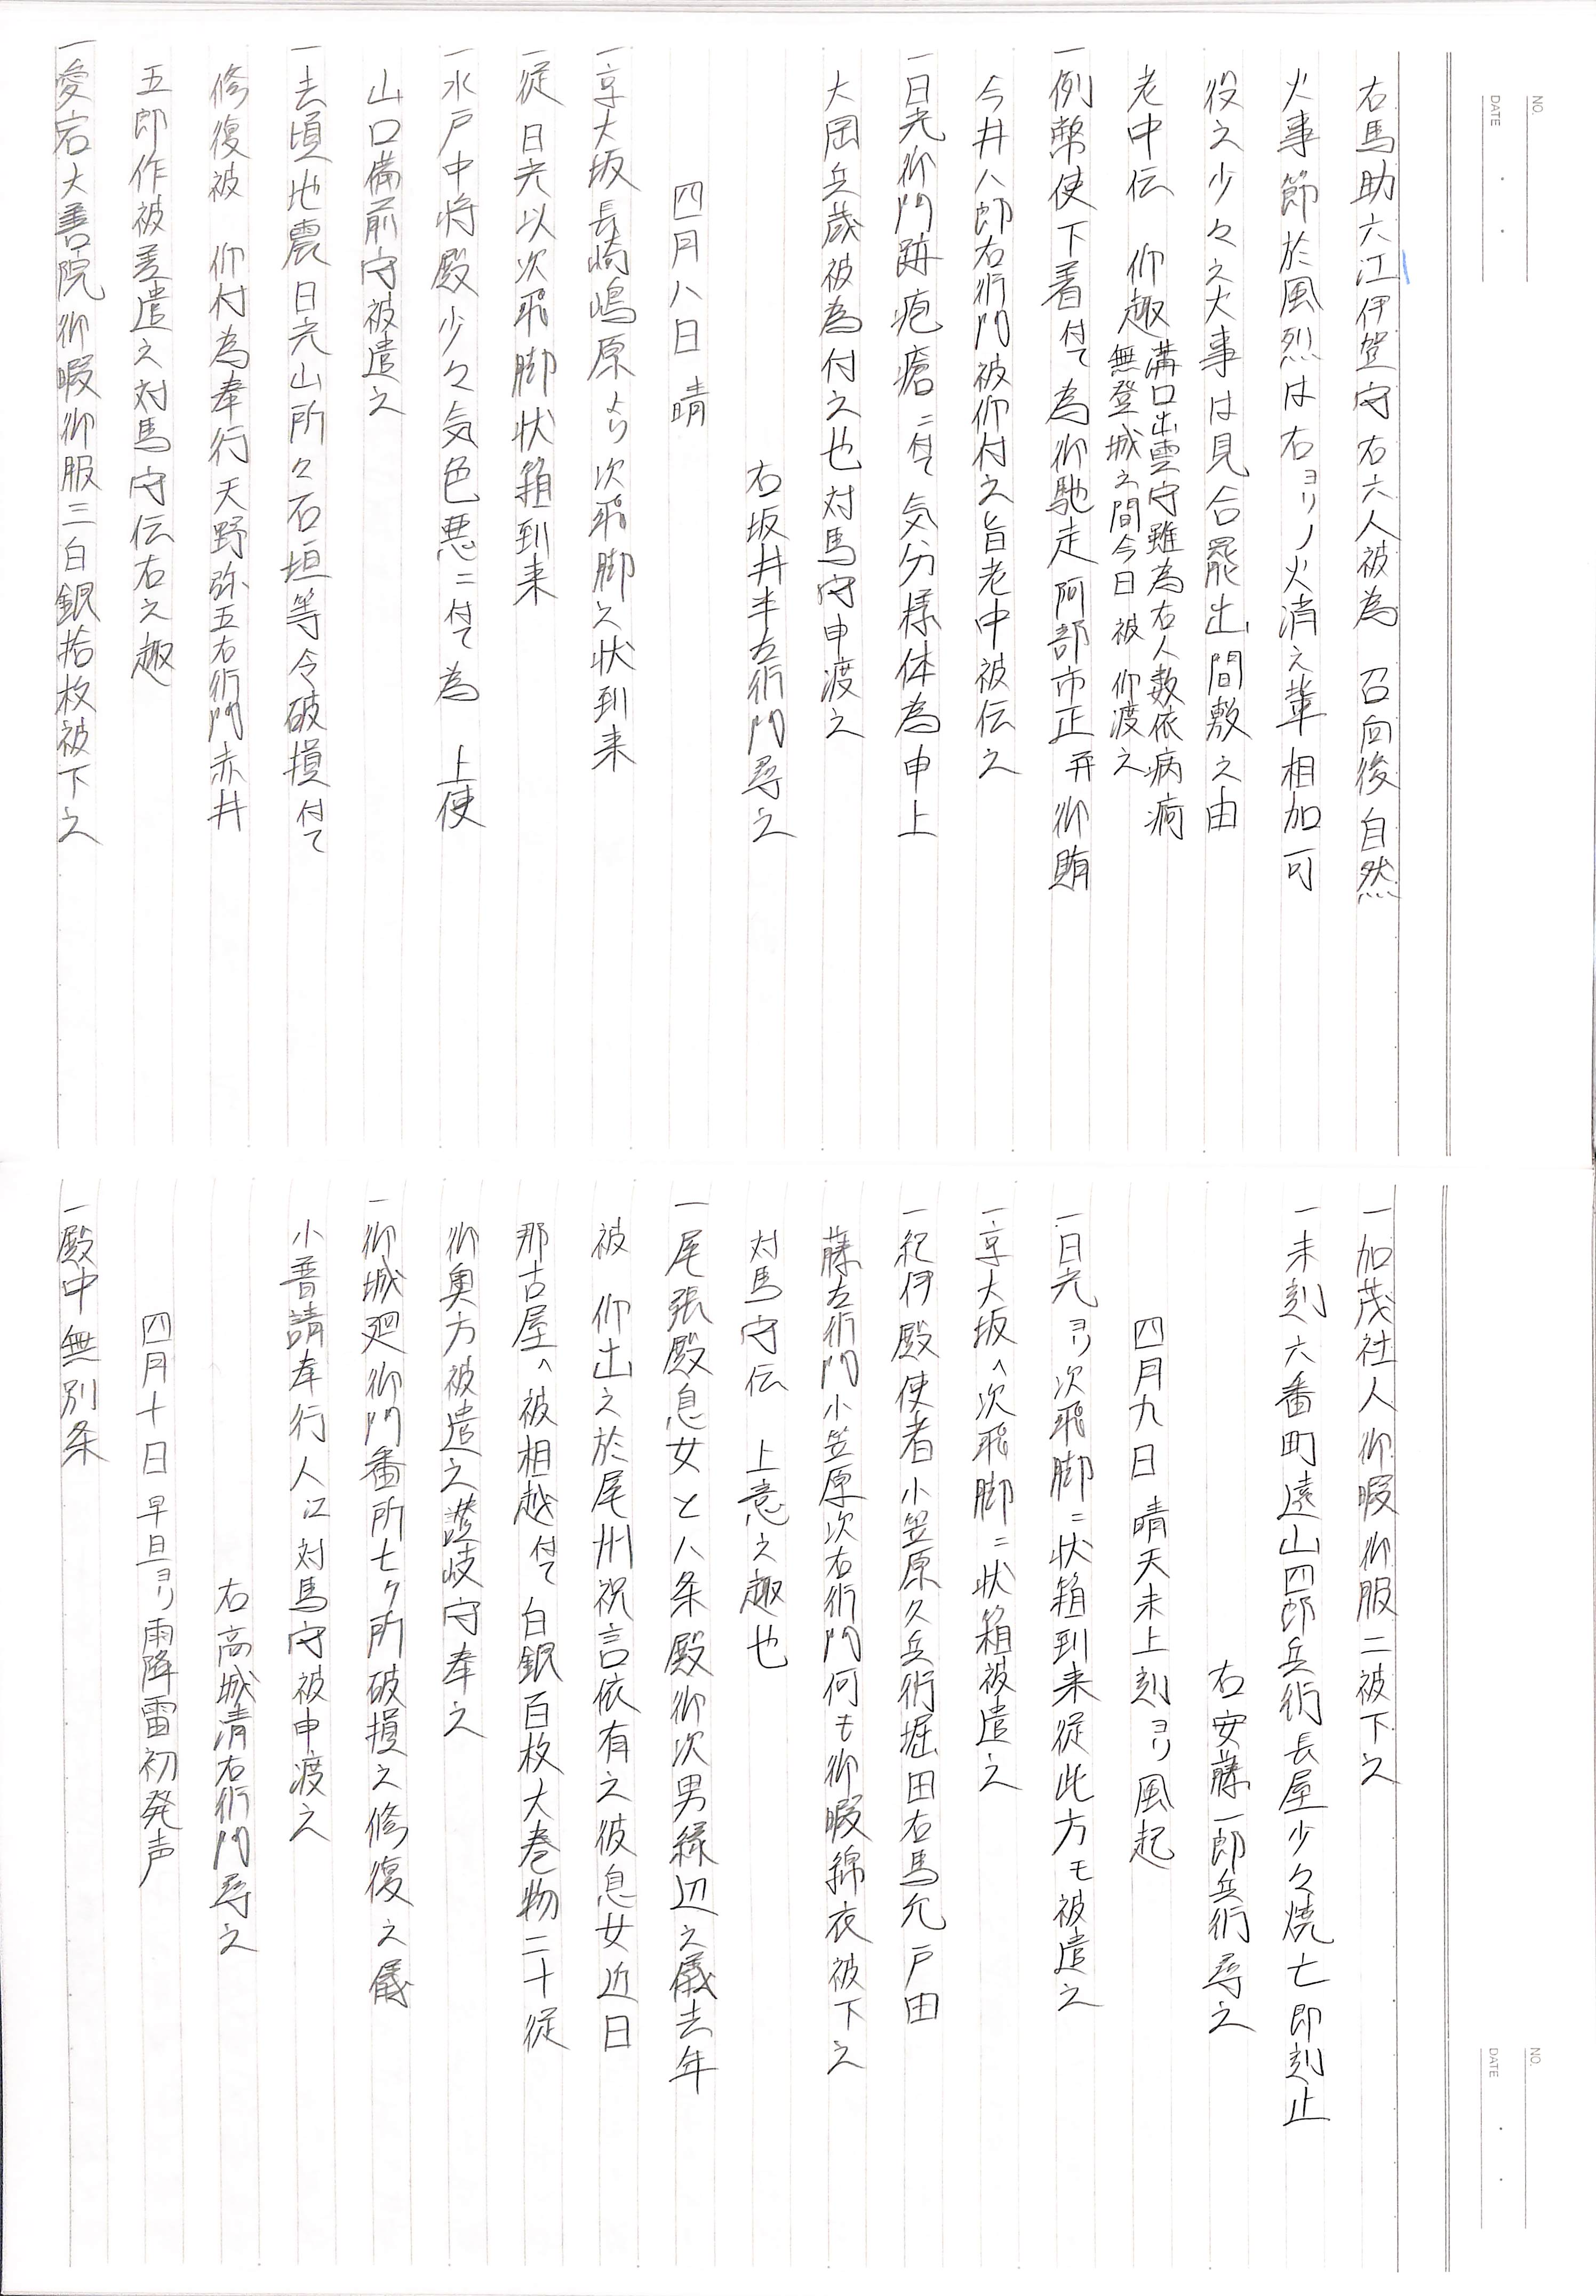 NO.
DATE
右馬助六江伊賀守右六人被為　召向後自然
火事節於風烈は右ヨリノ火消之輩相加可
役之少々之火事は見合罷出間敷之由
老中伝　仰趣溝口出雲守雖為右人数依病痾
無登城之間今日被　仰渡之
一例幣使下着付て為御馳走阿部市正并御賄
今井八郎右衛門被仰付之旨老中被伝之
一日光御門跡疱瘡ニ付て気分様体為申上
大岡兵蔵被為付之也対馬守申渡之
右坂井半左衛門尋之
四月八日　晴
一京大坂長崎嶋原より次飛脚之状到来
一従　日光以次飛脚状箱到来
一水戸中将殿少々気色悪ニ付て為　上使
山口備前守被遣之
一去頃地震日光山所々石垣等令破損付て
修復被　仰付為奉行天野弥五右衛門赤井
五郎作被差遣之対馬守伝右之趣
一愛宕大善院御暇御服三白銀拾枚被下之
NO.
DATE
一加茂社人御暇御服二被下之
一未刻六番町遠山四郎兵衛長屋少々焼亡即刻止
右安藤一郎兵衛尋之
四月九日　晴天未上刻ヨリ風起
一日光ヨリ次飛脚ニ状箱到来従此方モ被遣之
一京大坂へ次飛脚ニ状箱被遣之
一紀伊殿使者小笠原久兵衛堀田右馬允戸田
藤左衛門小笠原次右衛門何も御暇綿衣被下之
対馬守伝　上意之趣也
一尾張殿息女と八条殿御次男縁辺之儀去年
被　仰出之於尾州祝言依有之彼息女近日
那古屋へ被相越付て白銀百枚大巻物二十従
御奥方被遣之讃岐守奉之
一御城廻御門番所七ケ所破損之修復之儀
小普請奉行人江対馬守被申渡之
右高城清右衛門尋之
四月十日　早旦ヨリ雨降雷初発声
一殿中無別条